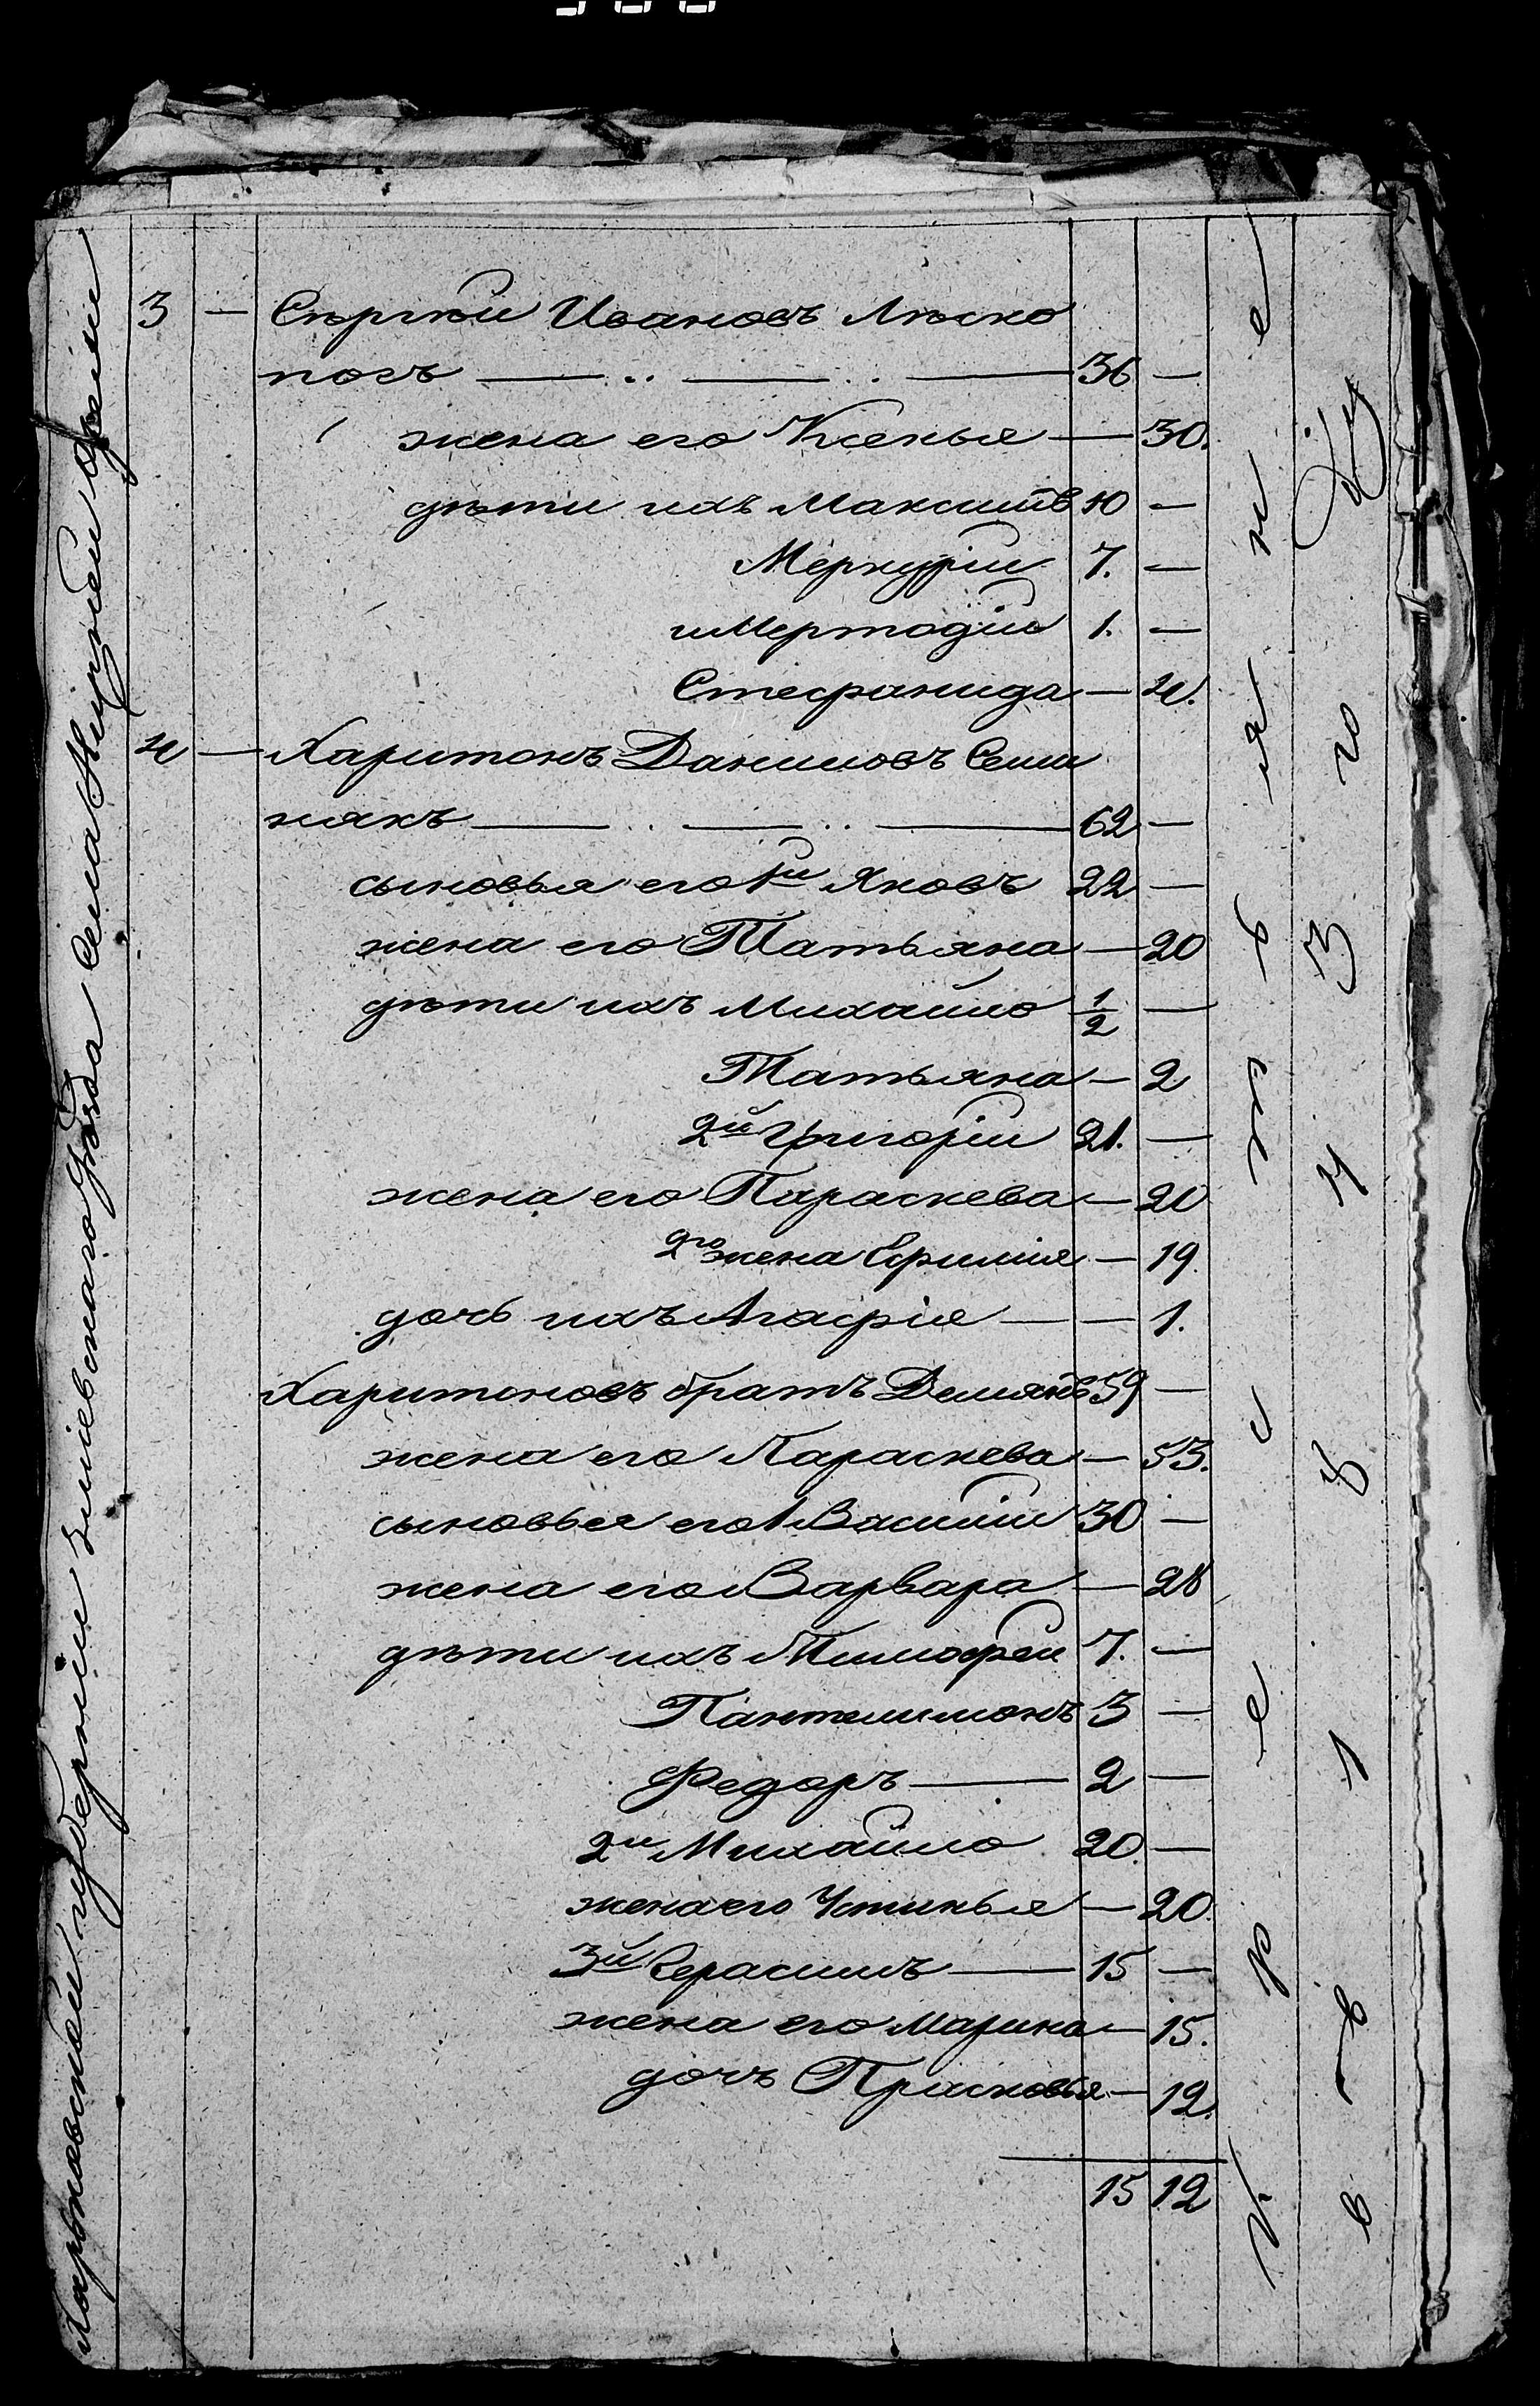 Харьковской губерніи зміевскаго уѣзда села
3 — Сергѣй Ивановъ Лѣско
ногъ — .. — .. — 36 —
жена его Ксенья — 30.
дѣти ихъ Максимъ 10 —
Меркурій 7. —
1. —
Стефанида — 4.
4 — Харитонъ Даниловъ Семи
някъ — .. — .. — 62 —
сыновья его 1й Яковъ 22 —
жена его Татьяна — 20
дѣти ихъ Михайло 1/2 —
Татьяна — 2
2й Григорій 21. —
жена его Параскева — 20
2го жена Ефимія — 19.
дочь ихъ Агафія — — 1.
Харитоновъ братъ Демянъ 59 —
жена его Параскева — 53.
сыновья его 1 Василій 30 —
жена его Варвара — 28
дѣти ихъ Тимофей 7. —
Пантелимонъ 3 —
Федоръ — 2 —
2й Михайло 20. —
жена его Устинья — 20.
3й Герасимъ — 15 —
жена его Марина — 15.
дочь Прасковья — 12.
15 12
Переселяются